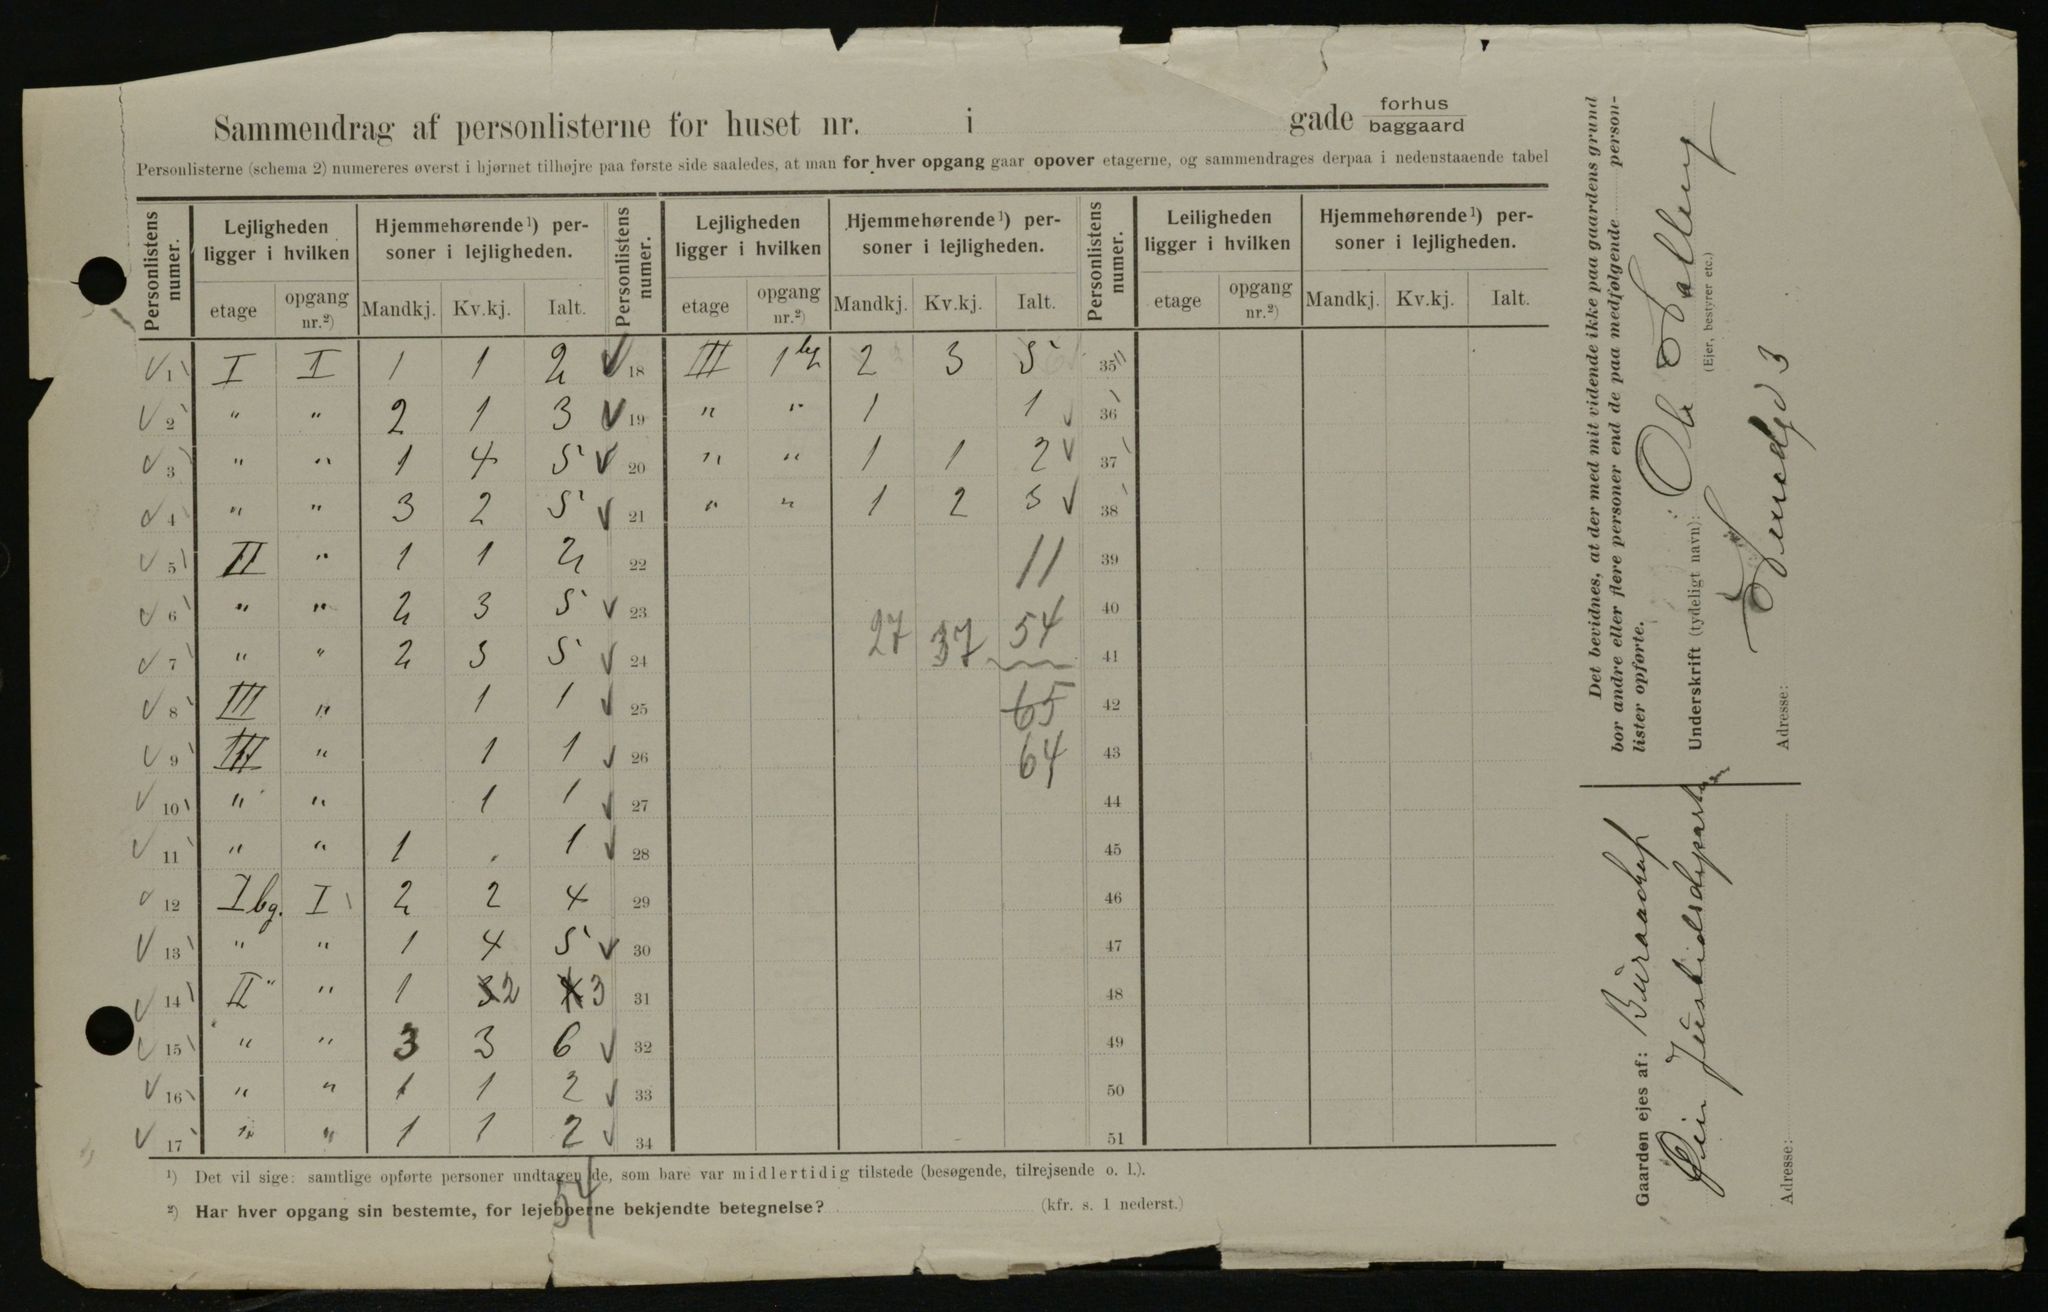 Sammendrag af personlisterne for huset nr. i gade forhus baggaard
Personlisterne (schema 2) numereres øverst i hjørnet tilhøjre paa første side saaledes, at man for hver opgang gaar opover etagerne, og sammendrages derpaa i nedenstaaende tabel
Personlistens numer. Lejligheden ligger i hvilken Hjemmehørende¹) personer i lejligheden. Personlistens numer. Lejligheden ligger i hvilken Hjemmehørende¹) personer i lejligheden. Personlistens numer. Leiligheden ligger i hvilken Hjemmehørende¹) personer i lejligheden.
etage opgang nr.²) Mandkj. Kv.kj. Ialt. etage opgang nr.²) Mandkj. Kv.kj. Ialt. etage opgang nr.²) Mandkj. Kv.kj. Ialt.
1 I I 1 1 2 18 III 1 bg 2 3 5 35
2 " " 2 1 3 19 " " 1 1 36
3 " " 1 4 5 20 " " 1 1 2 37
4 " " 3 2 5 21 " " 1 2 3 38
5 II " 1 1 2 22 11 39
6 " " 2 3 5 23 40
7 " " 2 3 5 24 27 37 54 41
8 III " 1 1 25 65 42
9 III " 1 1 26 64 43
10 " " 1 1 27 44
11 " " 1 . 1 28 45
12 I bg. I 2 2 4 29 46
13 " " 1 4 5 30 47
14 II " " 1 3 2 4 3 31 48
15 " " 3 3 6 32 49
16 " " 1 1 2 33 50
17 " " 1 1 2 34 51
¹) Det vil sige: samtlige opførte personer undtagen de, som bare var midlertidig tilstede (besøgende, tilrejsende o. l.).
54
²) Har hver opgang sin bestemte, for lejeboerne bekjendte betegnelse? (kfr. s. 1 nederst.)
Det bevidnes, at der med mit vidende ikke paa gaardens grund
bor andre eller flere personer end de paa medfølgende person-
lister opførte.
Underskrift (tydeligt navn): Ole Salberg
(Ejer, bestyrer etc.)
Adresse: 3
Gaarden ejes af:
Justitsdepartem
Adresse: